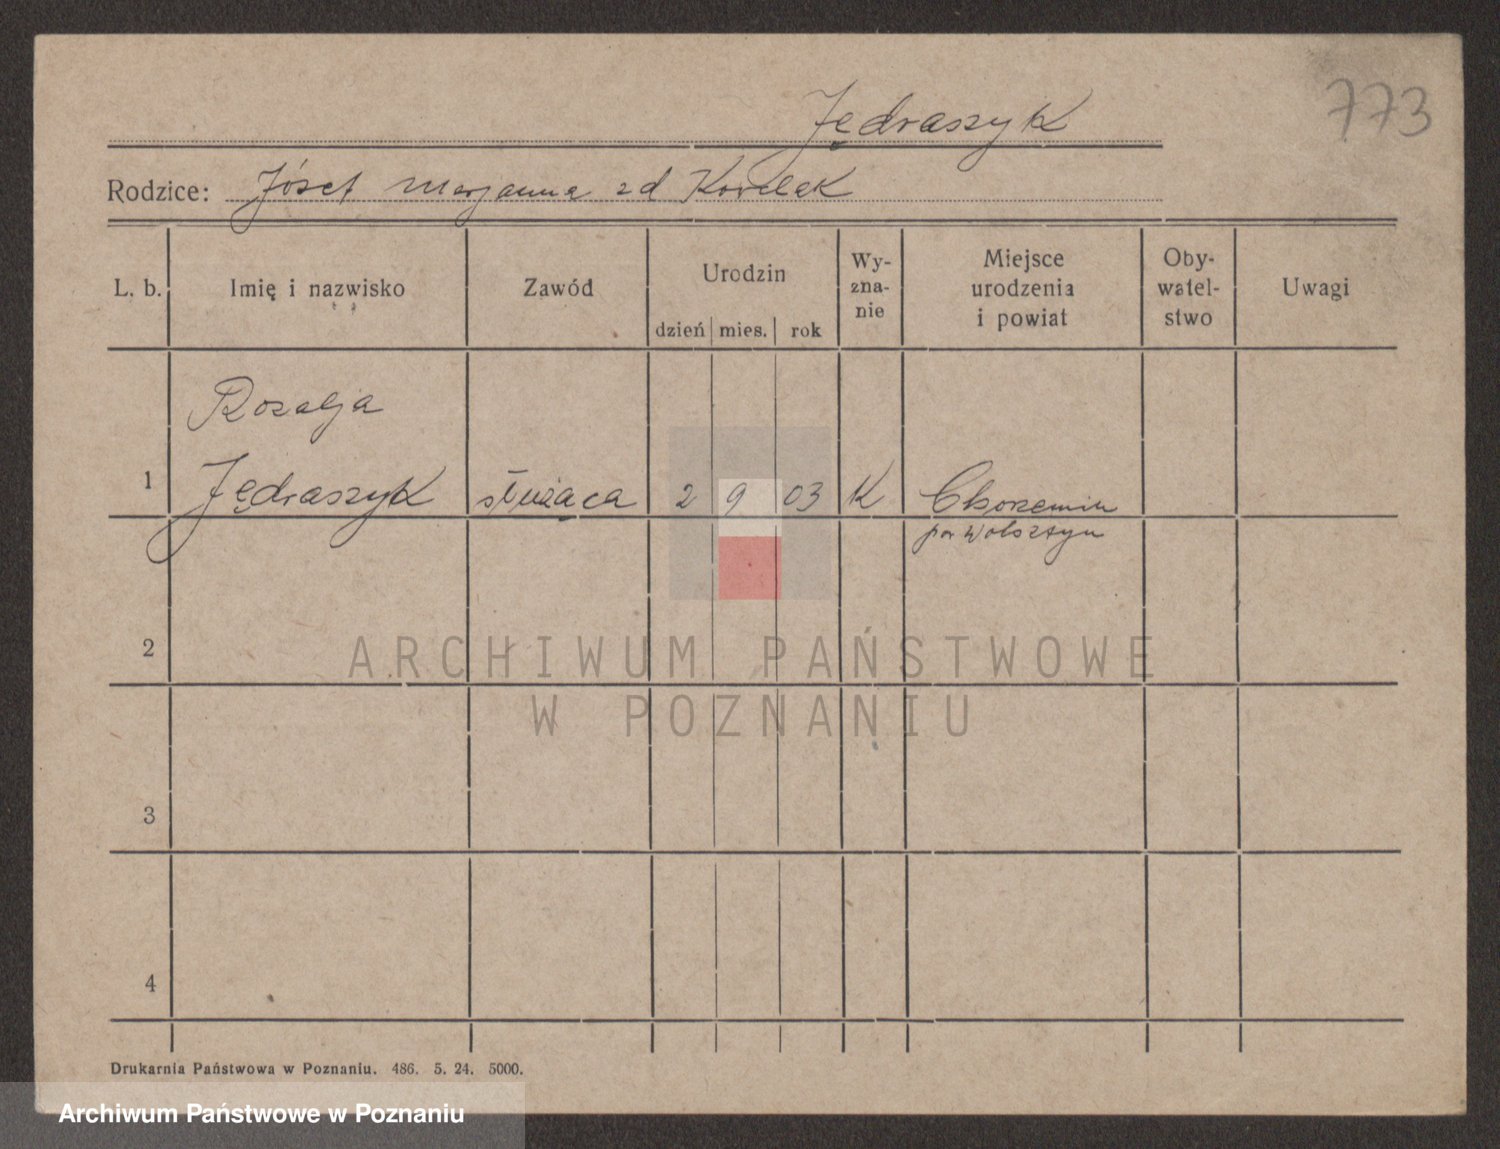 773
Jędraszyk
Rodzice: Józef Marjanna zd
L. b. Imię i nazwisko Zawód Urodzin dzień mies. rok Wy-zna-nie Miejsce urodzenia i powiat Oby-watel-stwo Uwagi
Rozalja
1 Jędraszyk służąca 2 9 03 K Chorzemin
pow Wolsztyn
2
ARCHIWUM PAŃSTWOWE
W POZNANIU
3
4
Drukarnia Państwowa w Poznaniu. 486. 5. 24. 5000.
Archiwum Państwowe w Poznaniu